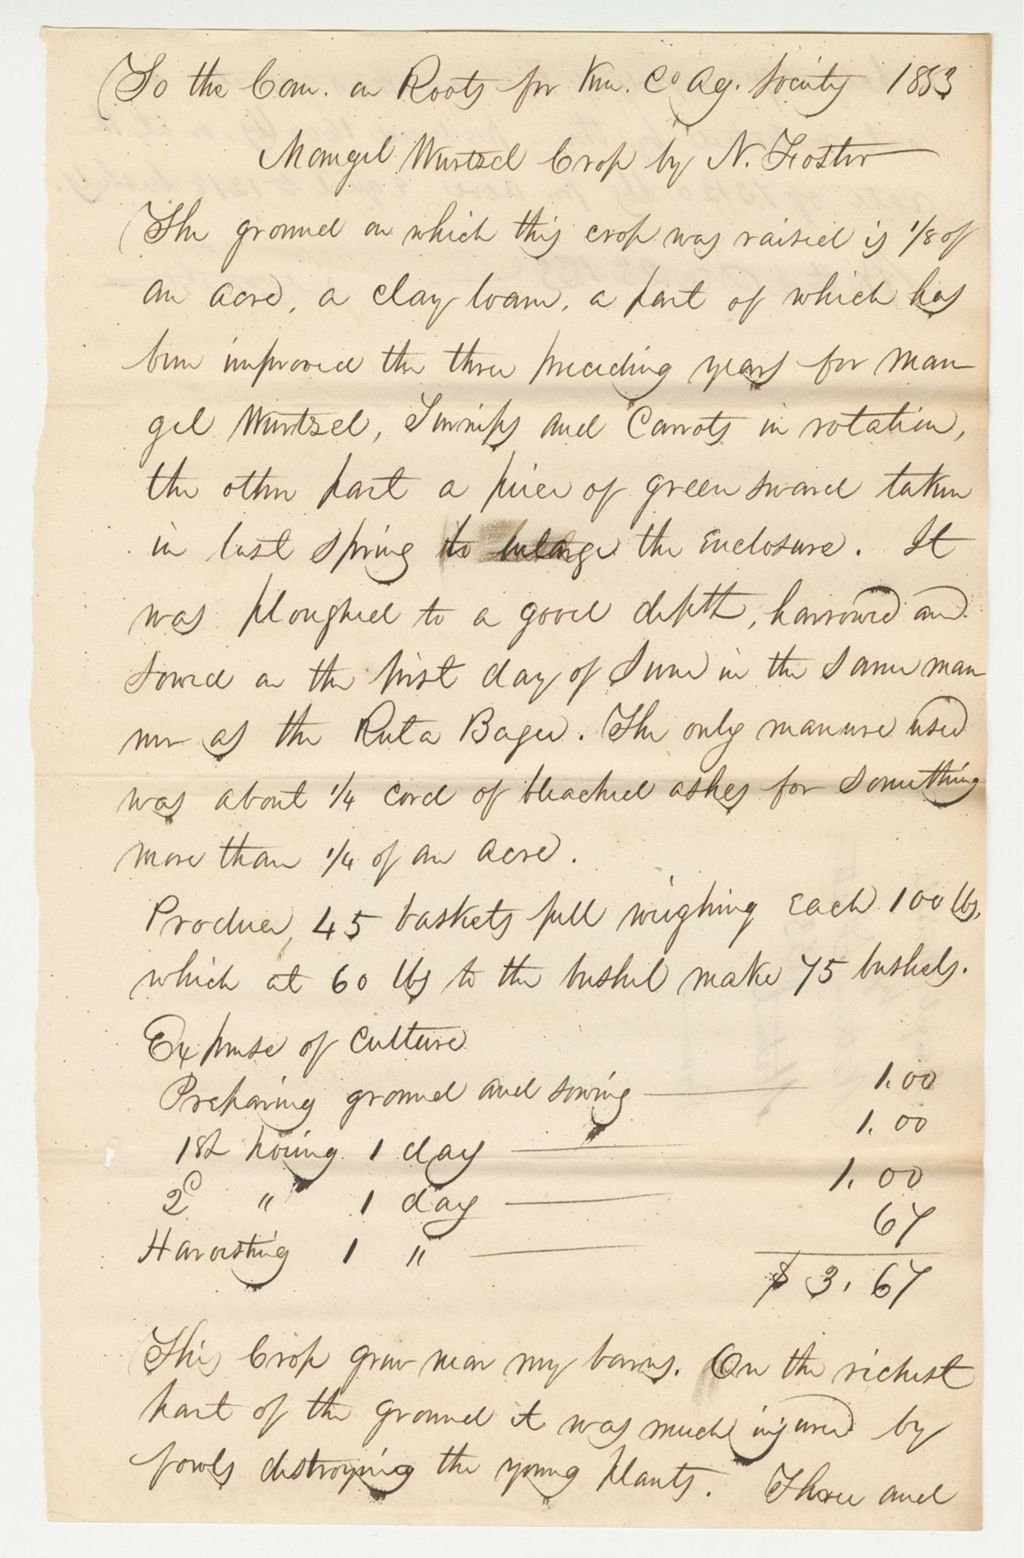 To the Com. on Roots for Ken. Co Ag. Society 1853
Mangel Wurtzel Crop by N. Foster
The ground on which this crop was raised is 1/8 of
an acre, a clay loam, a part of which has
been improved the three preceding years for Man-
gel Wurtzel, Turnips and Carrots in rotation,
the other part a piece of green sward taken
in last spring to enlarge the enclosure. It
was ploughed to a good depth, harrowed and
sowed on the first day of June in the same man
ner as the Ruta Baga. The only manure used
was about 1/4 cord of bleached ashes for something
more than 1/4 of an acre.
Produce, 45 baskets full weighing each 100 lbs,
which at 60 lbs to the bushel make 75 bushels.
Expense of culture
Preparing ground and sowing — 1.00
1st hoing 1 day — 1.00
2d " 1 day — 1.00
Harvesting 1 " — 67
$ 3.67
This Crop grew near my barns. On the richest
part of the ground it was much injured by
fowls destroying the young plants. Three and